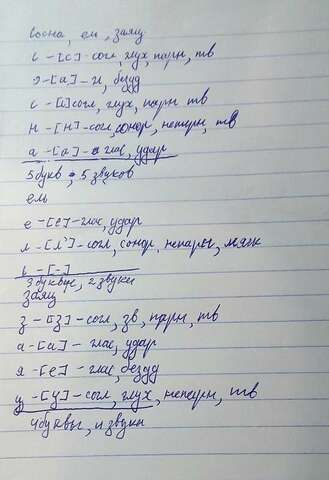 сосна, ель, заяц
с - [с] - согл, глух, парн, тв
о - [а] - гл, безуд
с - [с] согл, глух, парн тв
н - [н] - согл, сонор, непарн, тв
а - [а] - глас, удар
5 букв, 5 звуков
ель
е - [е] - глас, удар
л - [л'] - согл, сонор, непарн, мягк
ь - [-]
3 буквы, 2 звуки
заяц
з - [з] - согл, зв, парн, тв
а - [а] - глас, удар
я - [е] - глас, безуд
ц - [ц] - согл, глух, непарн, тв
4 буквы, 4 звуки